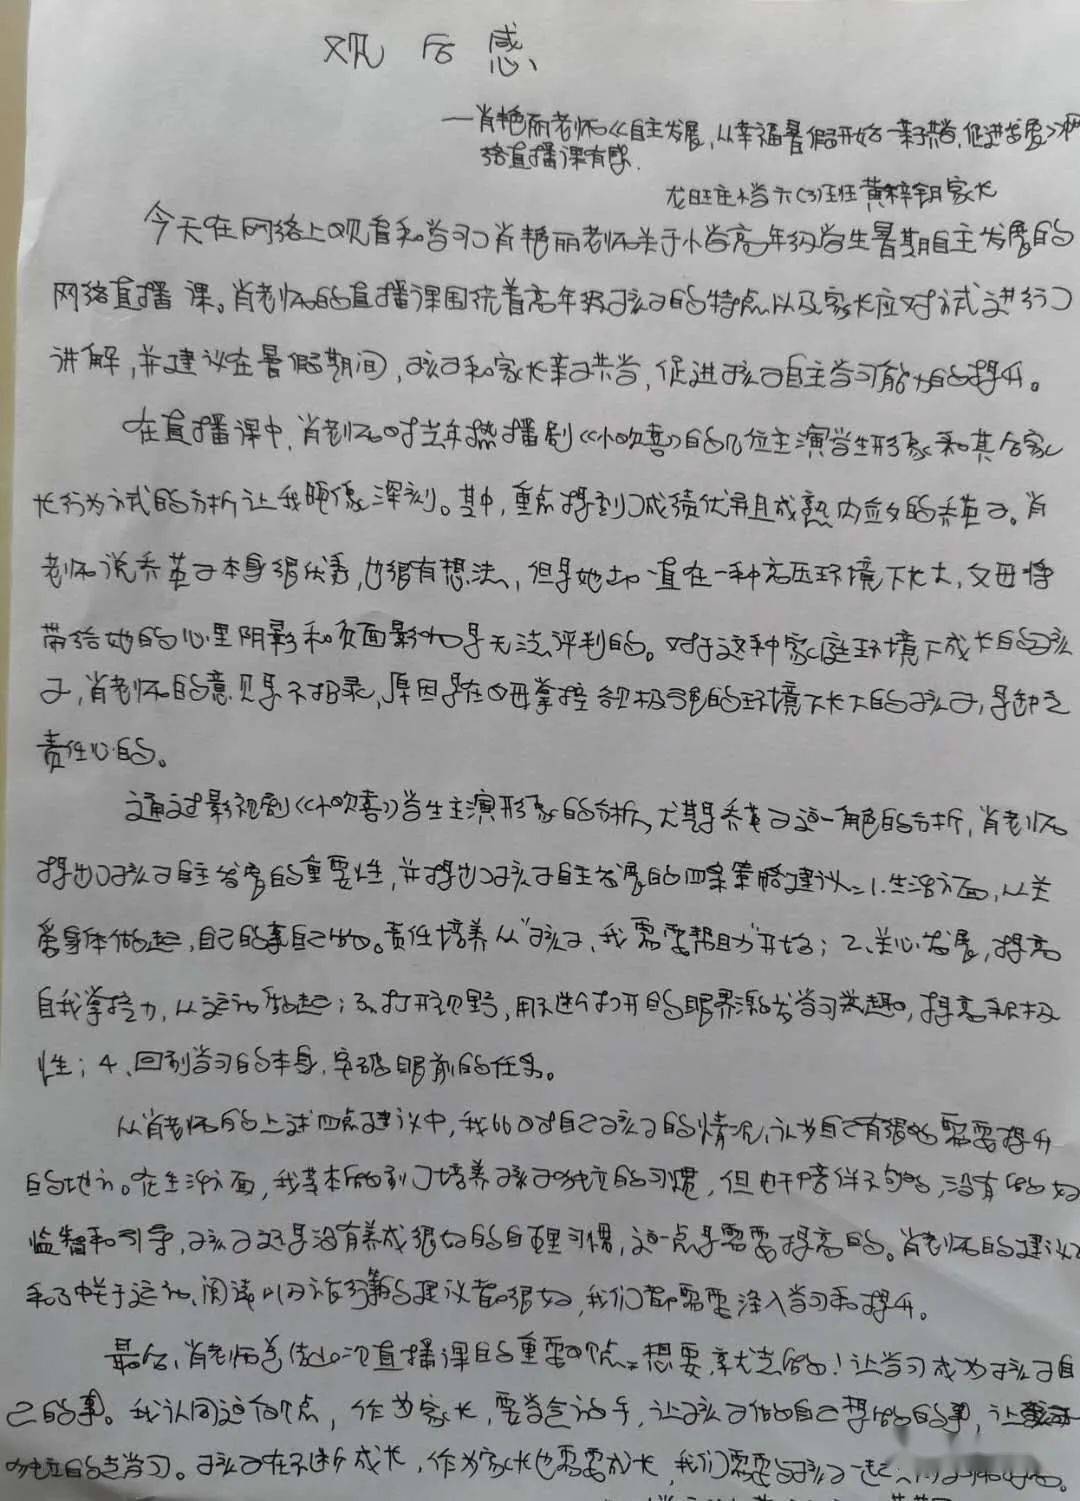 观后感
—肖艳丽老师《自主发展,从幸福暑假开始—亲子共学,促进发展》网
络直播课有感.
龙旺庄小学六(3)班 黄梓钥家长
今天在网络上观看和学习了肖艳丽老师关于小学高年级学生暑期自主发展的
网络直播课。肖老师的直播课围绕着高年级孩子的特点以及家长应对方式进行了
讲解,并建议在暑假期间,孩子和家长亲子共学,促进孩子自主学习能力的提升。
在直播课中,肖老师对当年热播剧《小欢喜》的几位主演学生形象和其后家
长行为方式的分析让我印像深刻。其中,重点提到了成绩优异且成熟内敛的乔英子。肖
老师说乔英子本身很优秀,也很有想法,但是她却一直在一种高压环境下长大,父母
带给她的心里阴影和负面影响是无法评判的。对于这种家庭环境下成长的孩
子,肖老师的意见是不招录,原因是在父母掌控欲极强的环境下长大的孩子,是缺乏
责任心的。
通过影视剧《小欢喜》学生主演形象的分析,尤其是乔英子这一角色的分析,肖老师
提出了孩子自主发展的重要性,并提出了孩子自主发展的四条策略建议:1.生活方面,从关
爱身体做起,自己的事自己做。责任培养从“孩子,我需要帮助”开始;2、关心发展,提高
自我掌控力,从运动做起;3.打开视野,用不断打开的眼界激发学习兴趣,提高积极
性;4、回到学习的本身,突破眼前的任务。
从肖老师的上述四点建议中,我比对自己孩子的情况,认为自己有很多需要提升
的地方。在生活方面,我基本做到了培养孩子独立的习惯,但由于陪伴不够,没有做好
监督和引导,孩子还是没有养成很好的自理习惯,这一点是需要提高的。肖老师的建议
和其中关于运动、阅读以及旅行等的建议都很好,我们都需要深入学习和提升。
最后,肖老师总结出一次直播课的重要观点:想要,就去做!让学习成为孩子自
己的事。我认同这个观点,作为家长,要学会放手,让孩子做自己想做的事,让
独立的去学习。孩子在不断成长,作为家长也需要成长,我们需要与孩子一起